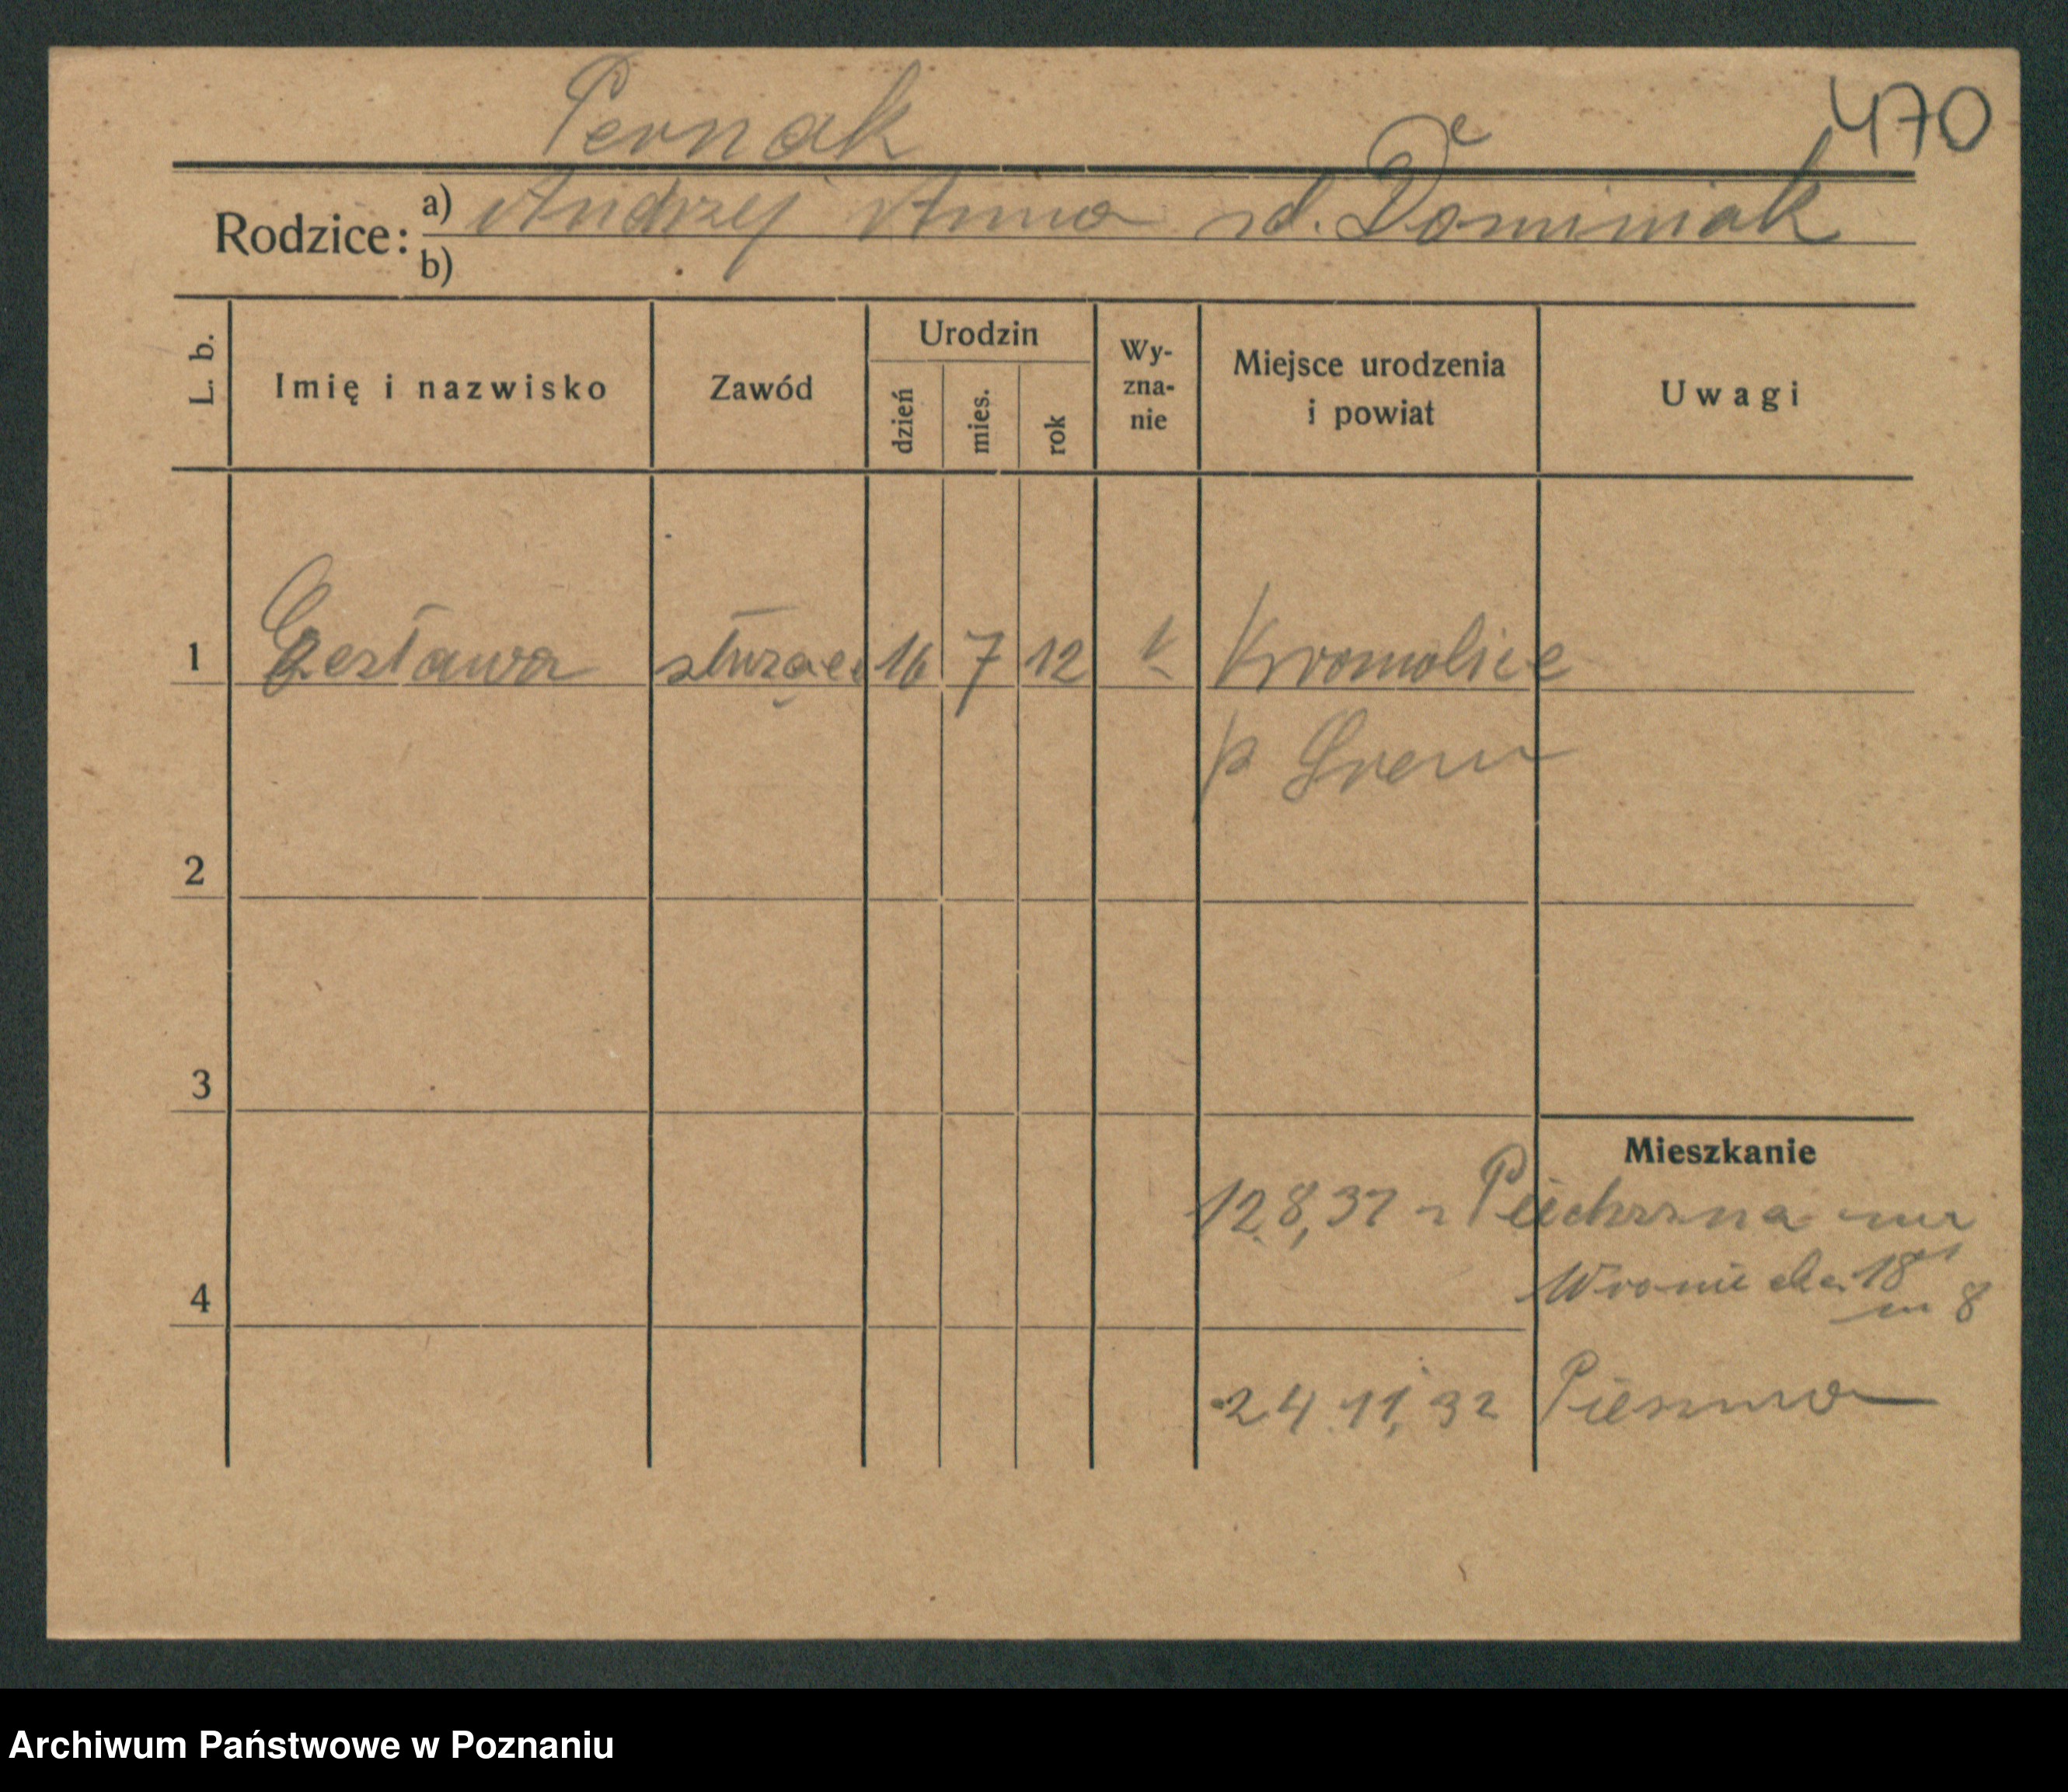 Pernak
470
Rodzice: a) Andrzej Anna zd. Dominiak
b)
L. b.
Imię i nazwisko
Zawód
Urodzin
dzień
mies.
rok
Wy-
zna-
nie
Miejsce urodzenia
i powiat
Uwagi
1 Czesława służąca 16 7 12 k Kromolice
p Śrem
2
3
Mieszkanie
12.8,32 z
Wroniecka 18
m 8
4
24.11,32
Archiwum Państwowe w Poznaniu